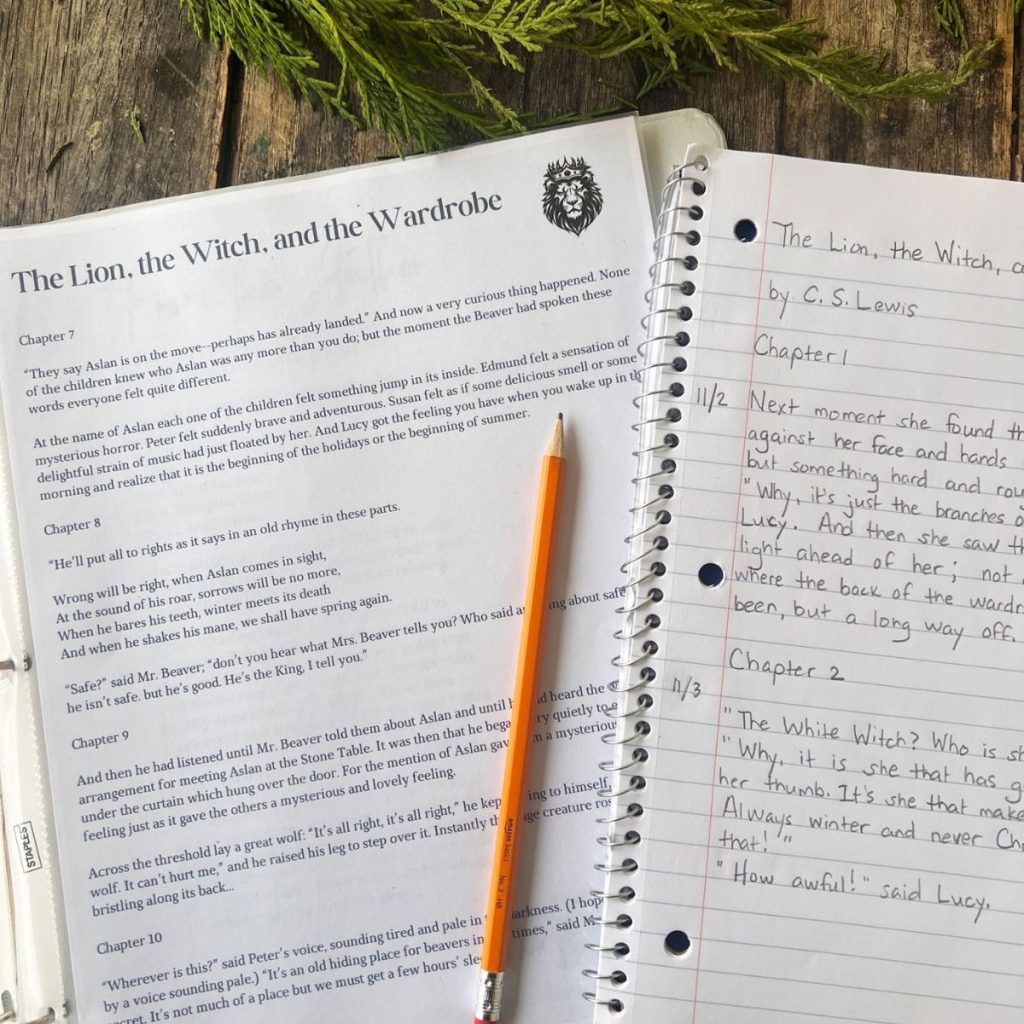 The Lion, the Witch, and the Wardrobe
Chapter 7
“They say Aslan is on the move--perhaps has already landed.” And now a very curious thing happened. None
of the children knew who Aslan was any more than you do; but the moment the Beaver had spoken these
words everyone felt quite different.
At the name of Aslan each one of the children felt something jump in its inside. Edmund felt a sensation of
mysterious horror. Peter felt suddenly brave and adventurous. Susan felt as if some delicious smell or some
delightful strain of music had just floated by her. And Lucy got the feeling you have when you wake up in
morning and realize that it is the beginning of the holidays or the beginning of summer.
Chapter 8
“He’ll put all to rights as it says in an old rhyme in these parts.
Wrong will be right, when Aslan comes in sight,
At the sound of his roar, sorrows will be no more,
When he bares his teeth, winter meets its death
And when he shakes his mane, we shall have spring again.
“Safe?” said Mr. Beaver; “don’t you hear what Mrs. Beaver tells you? Who said about
he isn’t safe. but he’s good. He’s the King, I tell you.”
Chapter 9
And then he had listened until Mr. Beaver told them about Aslan and until heard the
arrangement for meeting Aslan at the Stone Table. It was then that he quietly to
under the curtain which hung over the door. For the mention of Aslan a mysterious
feeling just as it gave the others a mysterious and lovely feeling.
Across the threshold lay a great wolf: “It’s all right, it’s all right,” he to himself,
wolf. It can’t hurt me,” and he raised his leg to step over it. Instantly creature
bristling along its back...
Chapter 10
“Wherever is this?” said Peter’s voice, sounding tired and pale in (I
by a voice sounding pale.) “It’s an old hiding place for beavers in times,” said
It’s not much of a place but we must get a few hours’
STAPLES
amazon basics No. 2 HB
The Lion, the Witch,
by C. S. Lewis
Chapter 1
11/2 Next moment she found
against her face and hands
but something hard and
"Why, it's just the branches
Lucy. And then she saw
light ahead of her; not
where the back of the
been, but a long way off.
Chapter 2
11/3
"The White Witch? Who is
"Why, it is she that has
her thumb. It's she that
Always winter and never
that!"
"How awful!" said Lucy.